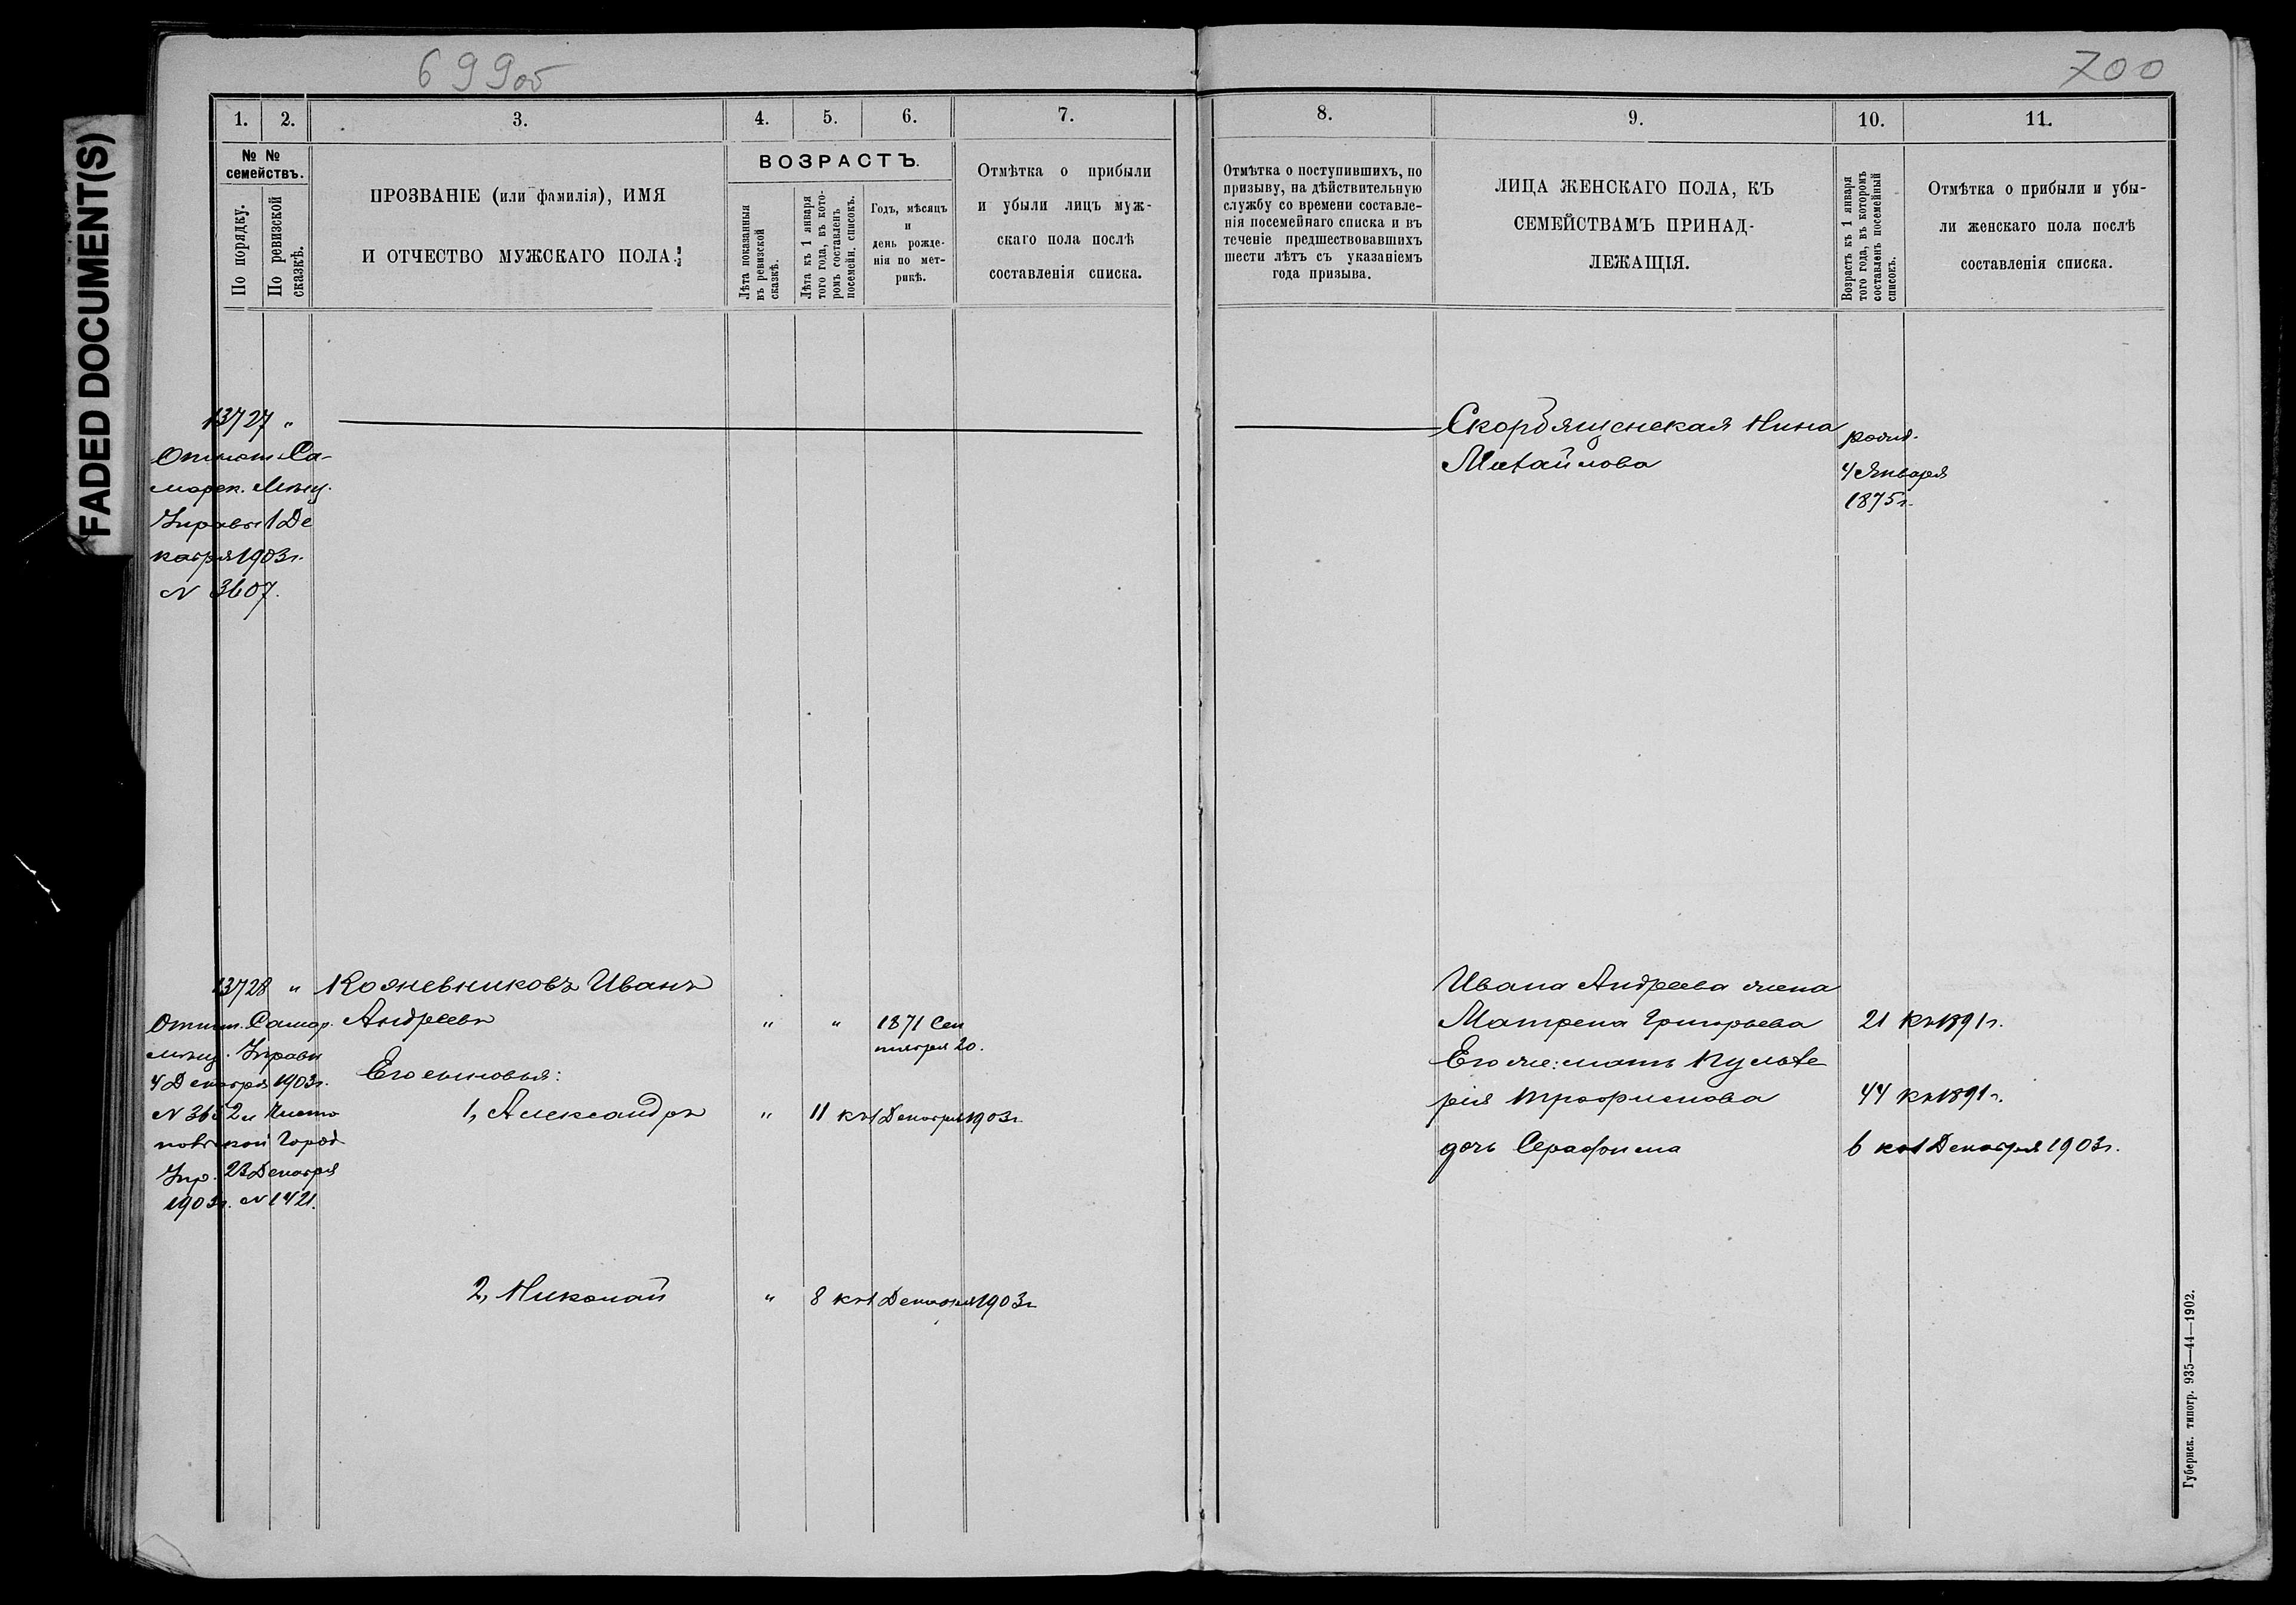 FADED DOCUMENT(S)
699об
700
1.
2.
3.
4.
5.
6.
7.
№ №
семействъ.
По порядку.
По ревизской
сказкѣ.
ПРОЗВАНІЕ (или фамилія), ИМЯ
И ОТЧЕСТВО МУЖСКАГО ПОЛА.
ВОЗРАСТЪ.
Лѣта показанныя
въ ревизской
сказкѣ.
Лѣта къ 1 января
того года, въ кото-
ромъ составленъ
посемейн. списокъ.
Годъ, мѣсяцъ
и
день рожде-
нія по мет-
рикѣ.
Отмѣтка о прибыли
и убыли лицъ муж-
скаго пола послѣ
составленія списка.
8.
9.
10.
11.
Отмѣтка о поступившихъ, по
призыву, на дѣйствительную
службу со времени составле-
нія посемейнаго списка и въ
теченіе предшествовавшихъ
шести лѣтъ съ указаніемъ
года призыва.
ЛИЦА ЖЕНСКАГО ПОЛА, КЪ
СЕМЕЙСТВАМЪ ПРИНАД-
ЛЕЖАЩІЯ.
Возрастъ къ 1 января
того года, въ которомъ
составленъ посемейный
списокъ.
Отмѣтка о прибыли и убы-
ли женскаго пола послѣ
составленія списка.
13727 "
Отнош. Са-
марск. Мѣщ.
Управы 1 Де
кабря 1903 г.
N 3607.
Скорбященская Нина
Михайлова
родил.
4 Января
1875 г.
13728 " Кожевниковъ Иванъ
Андреевъ " " 1871 Сен
тября 20.
Отнош. Самар.
мѣщ. Управы
4 Декабря 1903 г.
N 3652 и Чисто
польской Город
Упр. 23 Декабря
1903 г. N 1421.
Его сыновья:
1, Александръ " 11 къ 1 Декабря 1903 г
2, Николай " 8 къ 1 Декабря 1903 г
Ивана Андреева жена
Матрена Григорьева 21 къ 1891 г.
Его же: мать Пульхе
рія Трофимова 44 къ 1891 г.
дочь Серафима 6 къ 1 Декабря 1903 г.
Губернск. типогр. 935—44—1902.